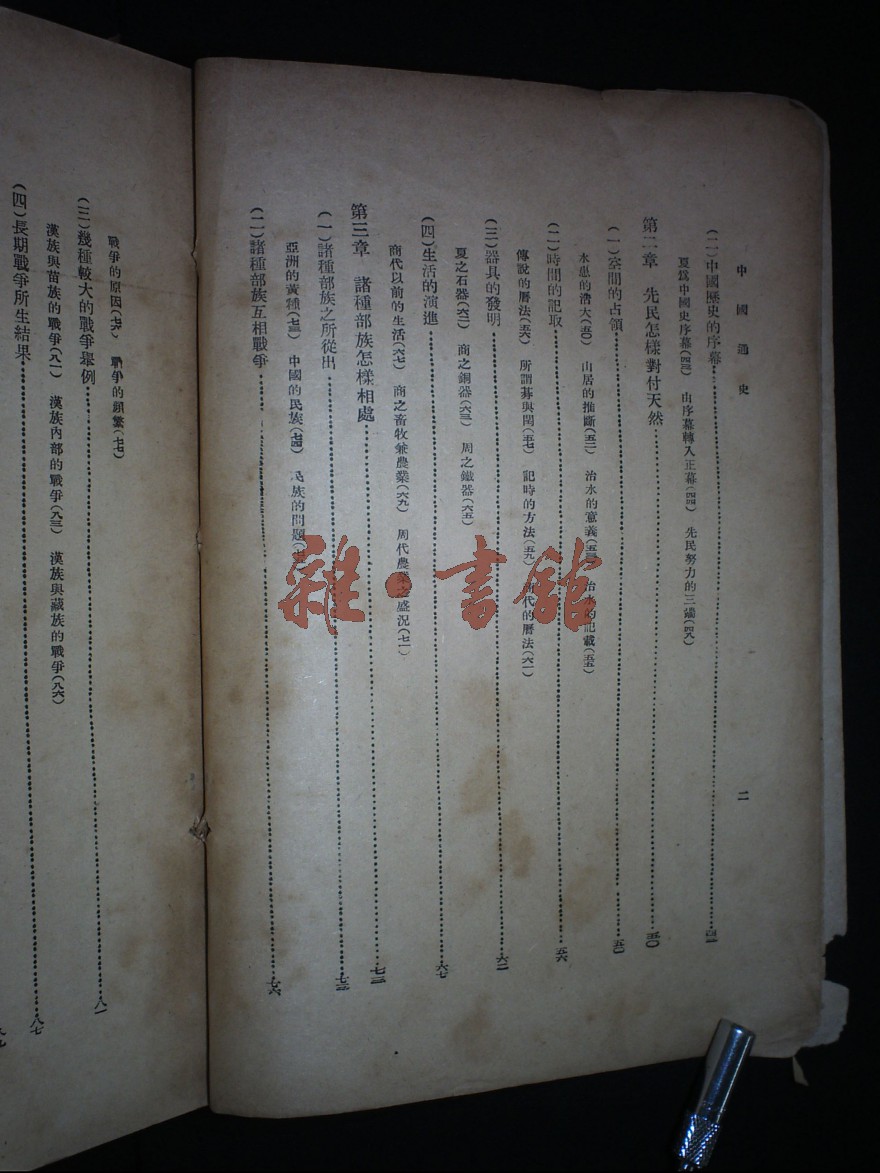 中國通史
二
(二)中國歷史的序幕 四二
夏爲中國史序幕(四三) 由序幕轉入正幕(四四) 先民努力的三端(四八)
第二章 先民怎樣對付天然 五〇
(一)空間的占領 五〇
水患的浩大(五〇) 山居的推斷(五二) 治水的意義(五三) 治水的記載(五五)
(二)時間的記取 五六
傳說的曆法(五六) 所謂朞與閏(五七) 記時的方法(五九) 代的曆法(六一)
(三)器具的發明 六二
夏之石器(六二) 商之銅器(六三) 周之鐵器(六五)
(四)生活的演進 六七
商代以前的生活(六七) 商之畜牧兼農業(六九) 周代農業之盛況(七一)
第三章 諸種部族怎樣相處 七三
(一)諸種部族之所從出 七三
亞洲的黃種(七三) 中國的民族(七四) 民族的問題
(二)諸種部族互相戰爭 七六
戰爭的原因(七六) 戰爭的頻繁(七七)
(三)幾種較大的戰爭舉例 八一
漢族與苗族的戰爭(八一) 漢族內部的戰爭(八三) 漢族與藏族的戰爭(八六)
(四)長期戰爭所生結果 八七
雜·書館